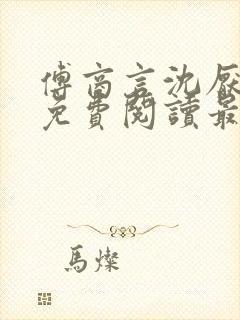 傅商言沈厭
免費閱讀最
馬燦